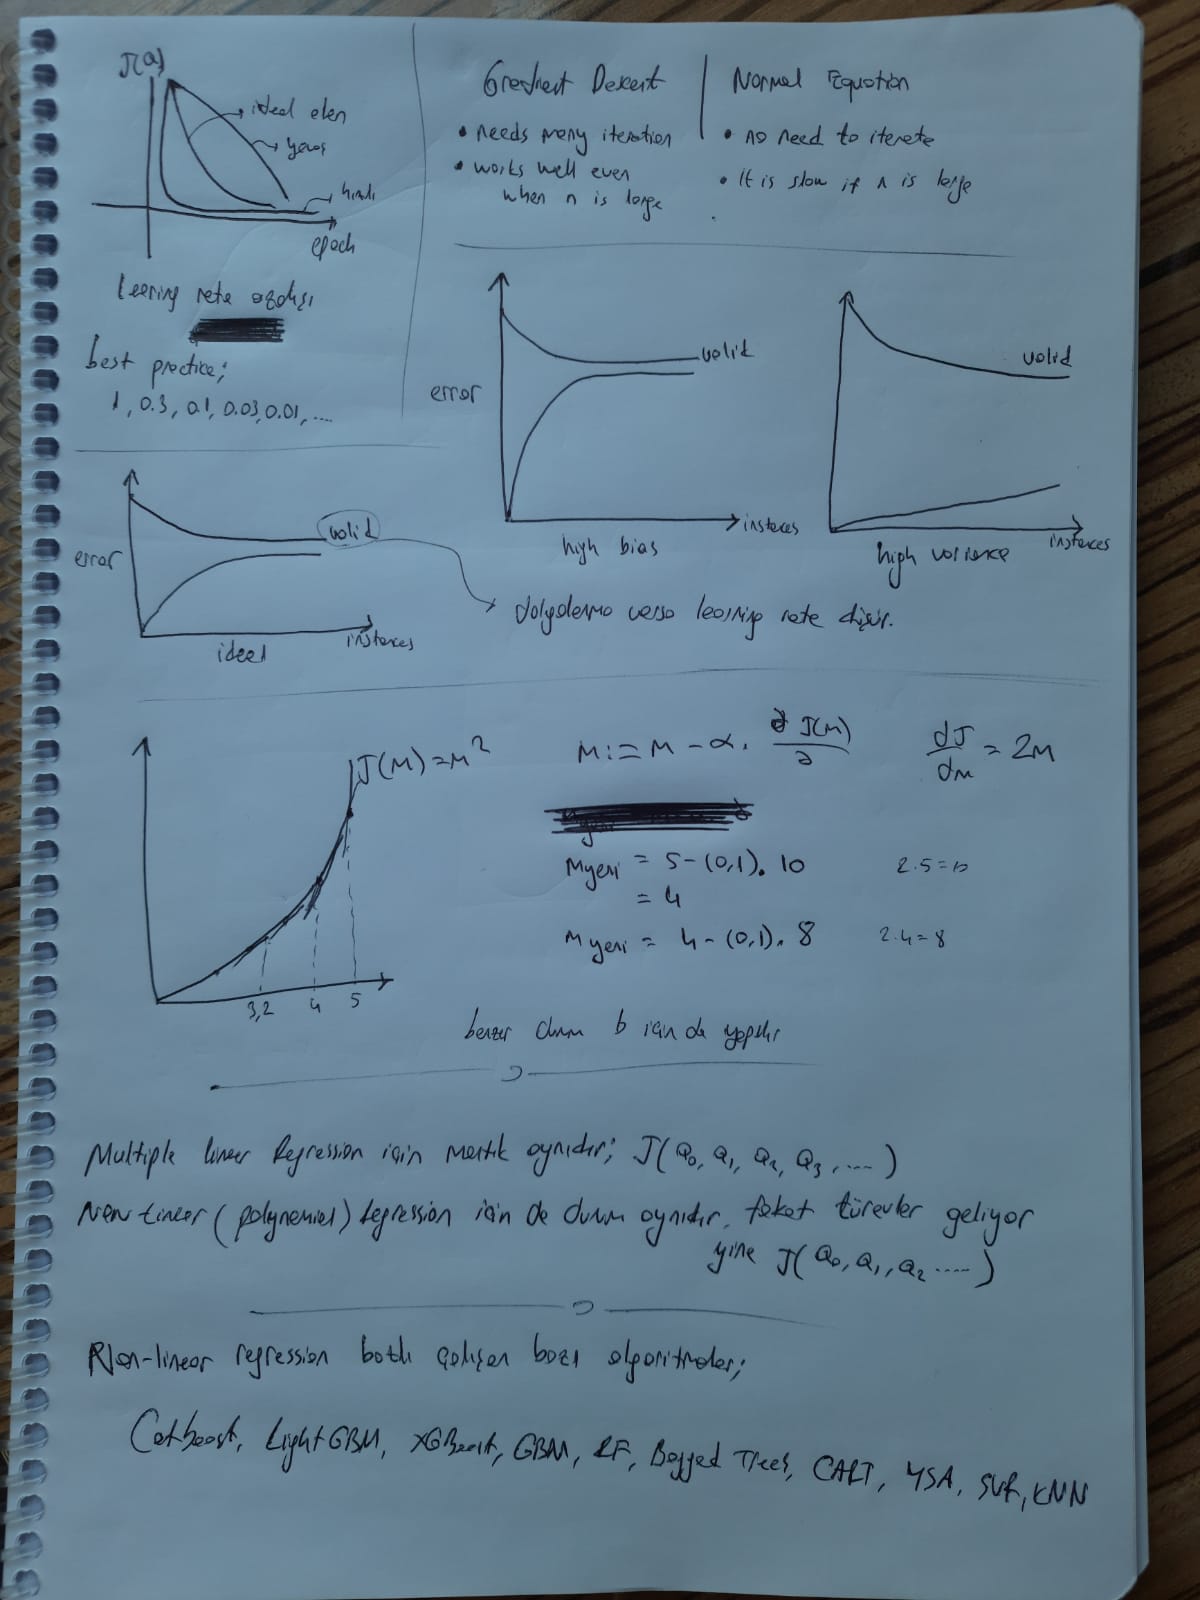 J(Q)
ideal olan
yavaş
hızlı
epoch
learning rate
best practice;
1, 0.3, 0.1, 0.03, 0.01, ....
Gradient Descent
• needs many iteration
• works well even
when n is large
Normal Equation
• no need to iterate
• It is slow if n is large
error
valid
instances
high bias
valid
instances
high variance
error
valid
instances
ideal
dalgalanma varsa learning rate düşür.
J(M)=M²
3,2
4
5
M:=M-α. ∂J(M)/∂
dJ/dM = 2M
Myeni = 5-(0,1). 10
2.5=10
= 4
Myeni = 4-(0,1). 8
2.4=8
benzer durum b için de yapılır
Multiple linear Regression için mantık aynıdır; J(Q₀, Q₁, Q₂, Q₃, ....)
Non linear (polynomial) regression için de durum aynıdır, fakat türevler geliyor
yine J(Q₀, Q₁, Q₂ .....)
Non-linear regression çalışan bazı algoritmalar;
Catboost, LightGBM, XGBoost, GBM, RF, Bagged Trees, CART, YSA, SVR, KNN